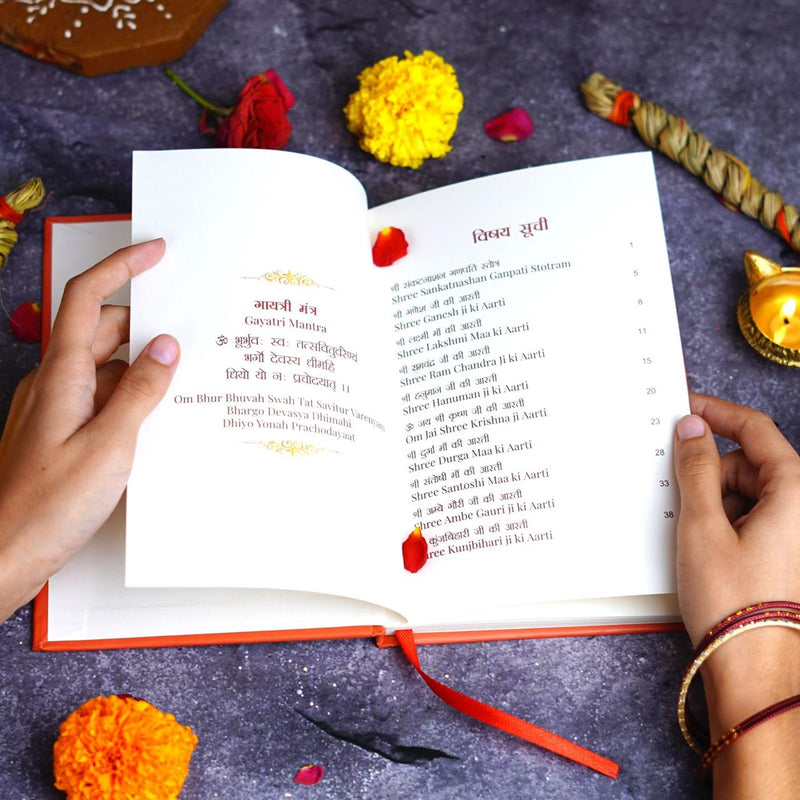 गायत्री मंत्र
Gayatri Mantra
ॐ भूर्भुवः स्वः तत्सवितुर्वरेण्यं
भर्गो देवस्य धीमहि
धियो यो नः प्रचोदयात् ।।
Om Bhur Bhuvah Swah Tat Savitur Varenyam
Bhargo Devasya Dhimahi
Dhiyo Yonah Prachodayaat
विषय सूची
श्री संकटनाशन गणपति स्तोत्र 1
Shree Sankatnashan Ganpati Stotram
श्री गणेश जी की आरती 5
Shree Ganesh ji ki Aarti
श्री लक्ष्मी माँ की आरती 8
Shree Lakshmi Maa ki Aarti
श्री रामचंद्र जी की आरती 11
Shree Ram Chandra Ji ki Aarti
श्री हनुमान जी की आरती 15
Shree Hanuman ji ki Aarti
ॐ जय श्री कृष्ण जी की आरती 20
Om Jai Shree Krishna ji ki Aarti
श्री दुर्गा माँ की आरती 23
Shree Durga Maa ki Aarti
श्री संतोषी माँ की आरती 28
Shree Santoshi Maa ki Aarti
श्री अम्बे गौरी जी की आरती 33
Shree Ambe Gauri ji ki Aarti
कुंजबिहारी जी की आरती 38
Shree Kunjbihari ji ki Aarti